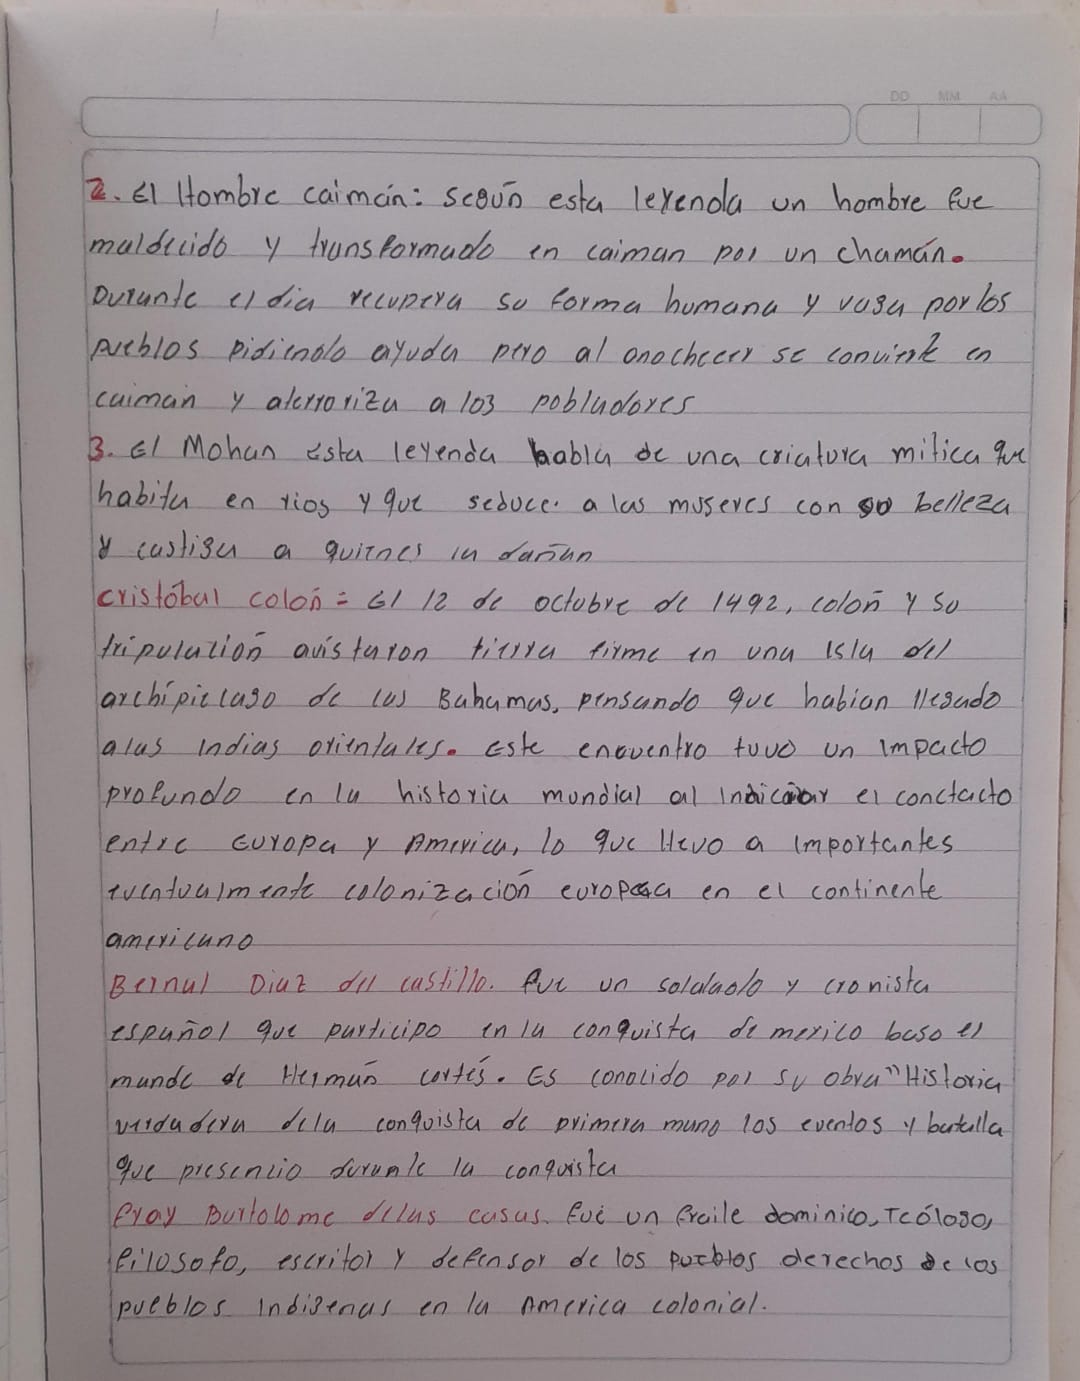 DD MM AA
2. El Hombre caimán: según esta leyenda un hombre fue
maldecido y transformado en caiman por un chamán.
Durante el dia recupera su forma humana y vaga por los
pueblos pidiendo ayuda pero al anochecer se convierte en
caiman y aterroriza a los pobladores
3. El Mohan esta leyenda habla de una criatura mitica que
habita en rios y que seduce a las mujeres con su belleza
y castiga a quienes la dañan
cristóbal colón = El 12 de octubre de 1492, colón y su
tripulación avistaron tierra firme en una isla del
archípielago de las Bahamas, pensando que habian llegado
alas indias orientales. Este encuentro tuvo un impacto
profundo en la historia mundial al indiciar el conctacto
entre Europa y America, lo que llevo a importantes
eventualmente colonización europea en el continente
americano
Bernal Diaz del castillo. fue un soldado y cronista
español que participo en la conquista de mexico baso el
mande de Hermán cortés. Es conocido por su obra "Historia
verdadera dela conquista de primera mano los eventos y batalla
que presencio durante la conquista
fray Bartolome delas casas. fue un fraile dominico, Teólogo,
filosofo, escritor y defensor de los pueblos derechos de los
pueblos indigenas en la America colonial.